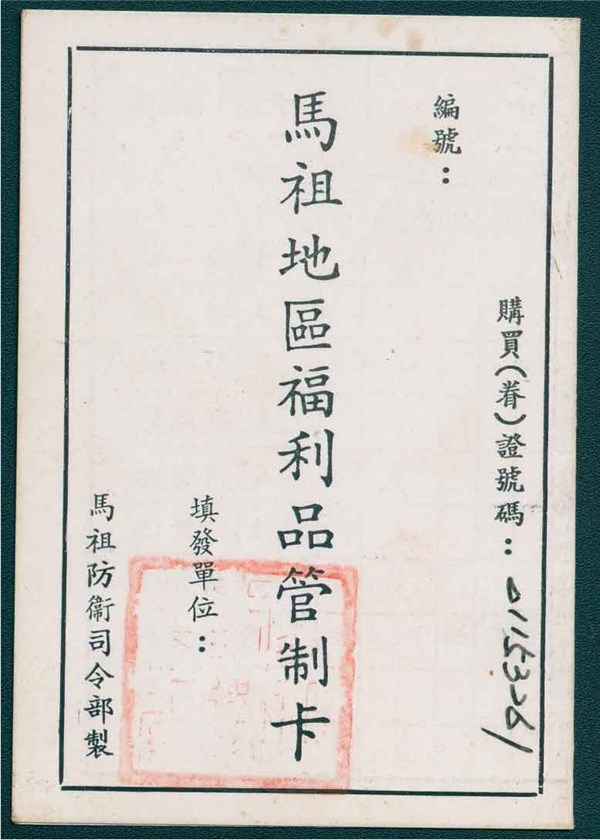 編號：
購買（眷）證號碼：01153761
馬祖地區福利品管制卡
填發單位：
馬祖防衛司令部製